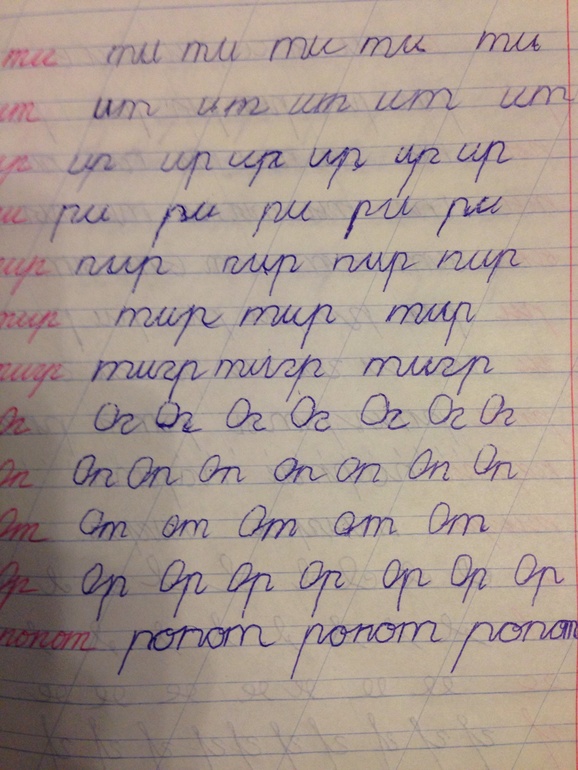 ти ти ти ти ти ти
ит ит ит ит ит ит
ир ир ир ир ир ир ир
ри ри ри ри ри ри
пир пир пир пир пир
тир тир тир тир
тигр тигр тигр тигр
Ог Ог Ог Ог Ог Ог Ог Ог
Оп Оп Оп Оп Оп Оп Оп Оп
От От От От От От
Ор Ор Ор Ор Ор Ор Ор Ор
ропот ропот ропот ропот